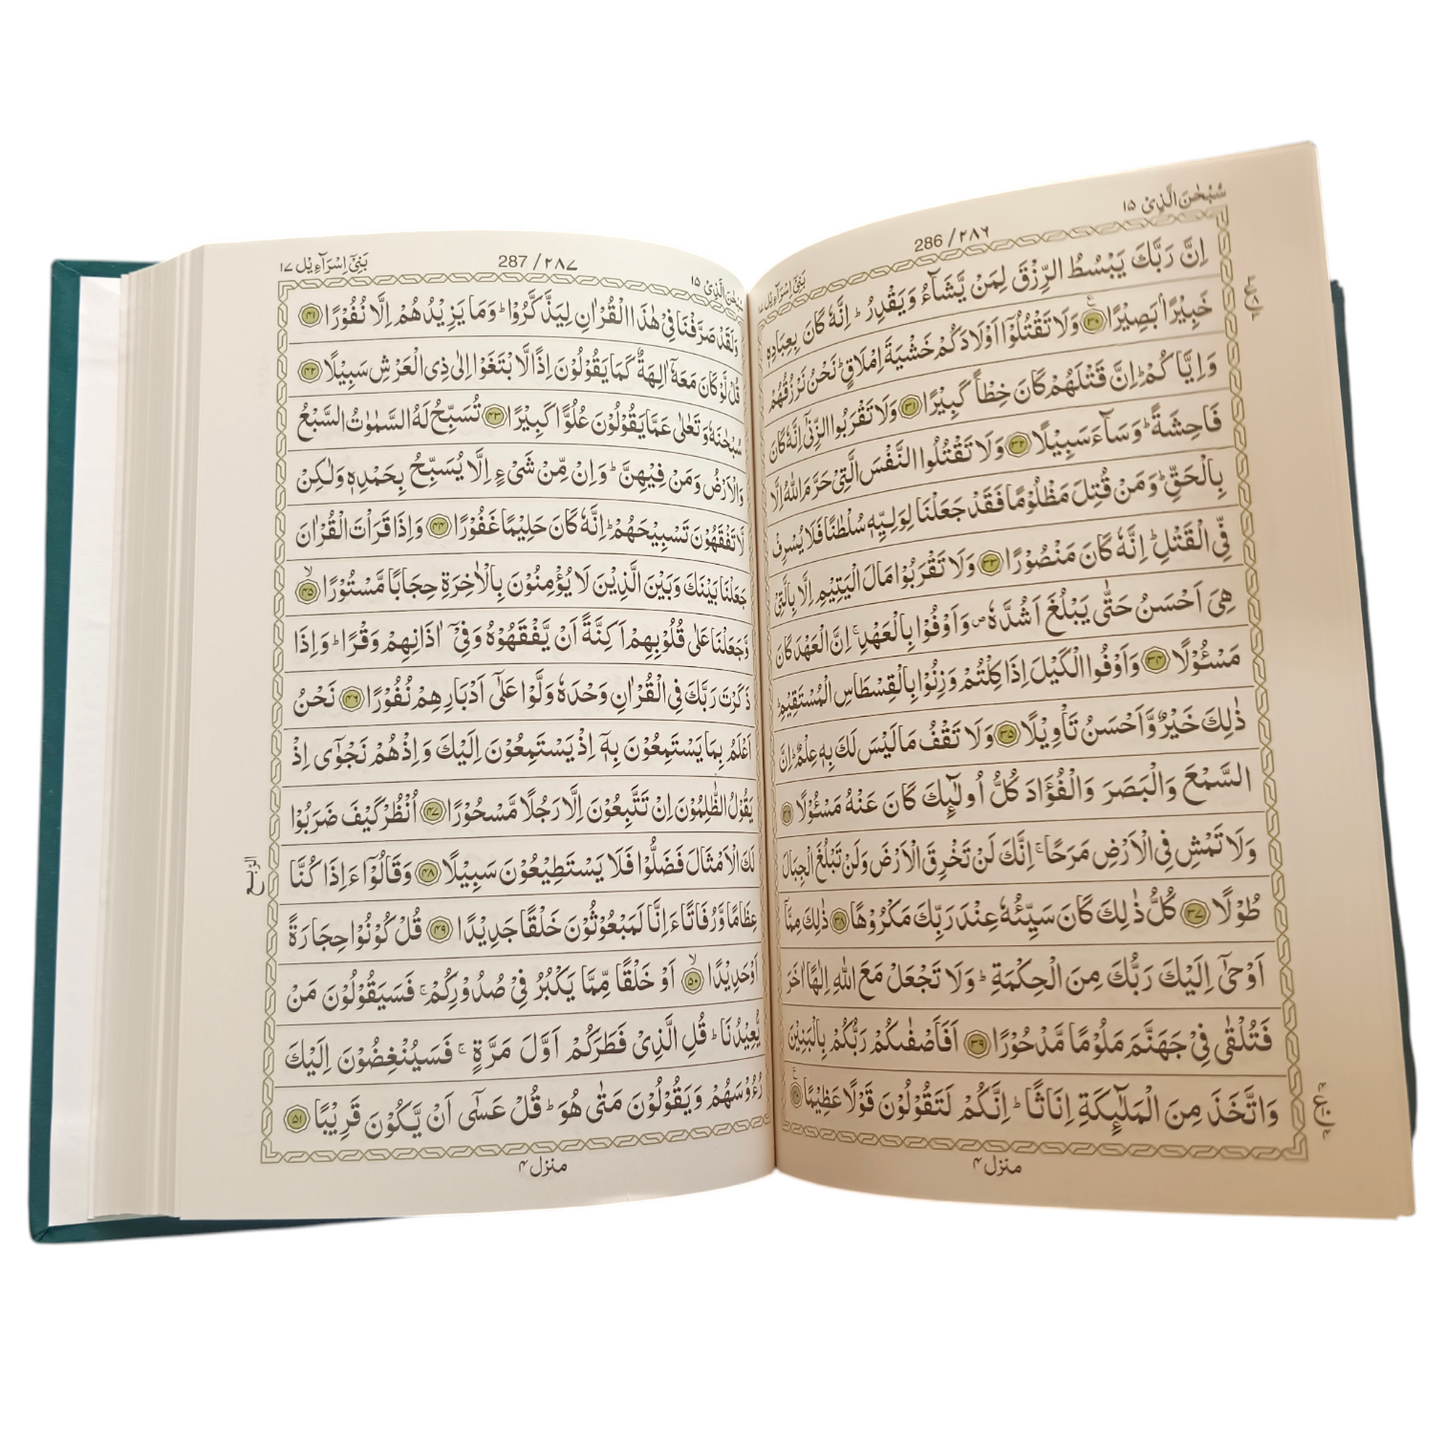 سُبْحٰنَ الَّذِیْ ۱۵
286 / ۲۸۶
بَنِیْۤ اِسْرَآءِیْل ۱۷
اِنَّ رَبَّكَ یَبْسُطُ الرِّزْقَ لِمَنْ یَّشَآءُ وَیَقْدِرُ ؕ اِنَّهٗ كَانَ بِعِبَادِهٖ
خَبِیْرًۢا بَصِیْرًا ۳۰ وَلَا تَقْتُلُوْۤا اَوْلَادَكُمْ خَشْیَةَ اِمْلَاقٍ ؕ نَحْنُ نَرْزُقُهُمْ
وَاِیَّاكُمْ ؕ اِنَّ قَتْلَهُمْ كَانَ خِطْاً كَبِیْرًا ۳۱ وَلَا تَقْرَبُوا الزِّنٰۤی اِنَّهٗ كَانَ
فَاحِشَةً ؕ وَسَآءَ سَبِیْلًا ۳۲ وَلَا تَقْتُلُوا النَّفْسَ الَّتِیْ حَرَّمَ اللّٰهُ اِلَّا
بِالْحَقِّ ؕ وَمَنْ قُتِلَ مَظْلُوْمًا فَقَدْ جَعَلْنَا لِوَلِیِّهٖ سُلْطٰنًا فَلَا یُسْرِفْ
فِّی الْقَتْلِ ؕ اِنَّهٗ كَانَ مَنْصُوْرًا ۳۳ وَلَا تَقْرَبُوْا مَالَ الْیَتِیْمِ اِلَّا بِالَّتِیْ
هِیَ اَحْسَنُ حَتّٰی یَبْلُغَ اَشُدَّهٗ ۪ وَاَوْفُوْا بِالْعَهْدِ ۚ اِنَّ الْعَهْدَ كَانَ
مَسْـُٔوْلًا ۳۴ وَاَوْفُوا الْكَیْلَ اِذَا كِلْتُمْ وَزِنُوْا بِالْقِسْطَاسِ الْمُسْتَقِیْمِ ؕ
ذٰلِكَ خَیْرٌ وَّاَحْسَنُ تَاْوِیْلًا ۳۵ وَلَا تَقْفُ مَا لَیْسَ لَكَ بِهٖ عِلْمٌ ؕ اِنَّ
السَّمْعَ وَالْبَصَرَ وَالْفُؤَادَ كُلُّ اُولٰٓىِٕكَ كَانَ عَنْهُ مَسْـُٔوْلًا ۳۶
وَلَا تَمْشِ فِی الْاَرْضِ مَرَحًا ۚ اِنَّكَ لَنْ تَخْرِقَ الْاَرْضَ وَلَنْ تَبْلُغَ الْجِبَالَ
طُوْلًا ۳۷ كُلُّ ذٰلِكَ كَانَ سَیِّئُهٗ عِنْدَ رَبِّكَ مَكْرُوْهًا ۳۸ ذٰلِكَ مِمَّاۤ
اَوْحٰۤی اِلَیْكَ رَبُّكَ مِنَ الْحِكْمَةِ ؕ وَلَا تَجْعَلْ مَعَ اللّٰهِ اِلٰهًا اٰخَرَ
فَتُلْقٰی فِیْ جَهَنَّمَ مَلُوْمًا مَّدْحُوْرًا ۳۹ اَفَاَصْفٰىكُمْ رَبُّكُمْ بِالْبَنِیْنَ
وَاتَّخَذَ مِنَ الْمَلٰٓىِٕكَةِ اِنَاثًا ؕ اِنَّكُمْ لَتَقُوْلُوْنَ قَوْلًا عَظِیْمًا ۴۰
منزل ۴
سُبْحٰنَ الَّذِیْ ۱۵
287 / ۲۸۷
بَنِیْۤ اِسْرَآءِیْل ۱۷
وَلَقَدْ صَرَّفْنَا فِیْ هٰذَا الْقُرْاٰنِ لِیَذَّكَّرُوْا ؕ وَمَا یَزِیْدُهُمْ اِلَّا نُفُوْرًا ۴۱
قُلْ لَّوْ كَانَ مَعَهٗۤ اٰلِهَةٌ كَمَا یَقُوْلُوْنَ اِذًا لَّابْتَغَوْا اِلٰی ذِی الْعَرْشِ سَبِیْلًا ۴۲
سُبْحٰنَهٗ وَتَعٰلٰی عَمَّا یَقُوْلُوْنَ عُلُوًّا كَبِیْرًا ۴۳ تُسَبِّحُ لَهُ السَّمٰوٰتُ السَّبْعُ
وَالْاَرْضُ وَمَنْ فِیْهِنَّ ؕ وَاِنْ مِّنْ شَیْءٍ اِلَّا یُسَبِّحُ بِحَمْدِهٖ وَلٰكِنْ
لَّا تَفْقَهُوْنَ تَسْبِیْحَهُمْ ؕ اِنَّهٗ كَانَ حَلِیْمًا غَفُوْرًا ۴۴ وَاِذَا قَرَاْتَ الْقُرْاٰنَ
جَعَلْنَا بَیْنَكَ وَبَیْنَ الَّذِیْنَ لَا یُؤْمِنُوْنَ بِالْاٰخِرَةِ حِجَابًا مَّسْتُوْرًا ۴۵
وَّجَعَلْنَا عَلٰی قُلُوْبِهِمْ اَكِنَّةً اَنْ یَّفْقَهُوْهُ وَفِیْۤ اٰذَانِهِمْ وَقْرًا ؕ وَاِذَا
ذَكَرْتَ رَبَّكَ فِی الْقُرْاٰنِ وَحْدَهٗ وَلَّوْا عَلٰۤی اَدْبَارِهِمْ نُفُوْرًا ۴۶ نَحْنُ
اَعْلَمُ بِمَا یَسْتَمِعُوْنَ بِهٖۤ اِذْ یَسْتَمِعُوْنَ اِلَیْكَ وَاِذْ هُمْ نَجْوٰۤی اِذْ
یَقُوْلُ الظّٰلِمُوْنَ اِنْ تَتَّبِعُوْنَ اِلَّا رَجُلًا مَّسْحُوْرًا ۴۷ اُنْظُرْ كَیْفَ ضَرَبُوْا
لَكَ الْاَمْثَالَ فَضَلُّوْا فَلَا یَسْتَطِیْعُوْنَ سَبِیْلًا ۴۸ وَقَالُوْۤا ءَاِذَا كُنَّا
عِظَامًا وَّرُفَاتًا ءَاِنَّا لَمَبْعُوْثُوْنَ خَلْقًا جَدِیْدًا ۴۹ قُلْ كُوْنُوْا حِجَارَةً
اَوْ حَدِیْدًا ۵۰ اَوْ خَلْقًا مِّمَّا یَكْبُرُ فِیْ صُدُوْرِكُمْ ۚ فَسَیَقُوْلُوْنَ مَنْ
یُّعِیْدُنَا ؕ قُلِ الَّذِیْ فَطَرَكُمْ اَوَّلَ مَرَّةٍ ۚ فَسَیُنْغِضُوْنَ اِلَیْكَ
رُءُوْسَهُمْ وَیَقُوْلُوْنَ مَتٰی هُوَ ؕ قُلْ عَسٰۤی اَنْ یَّكُوْنَ قَرِیْبًا ۵۱
الربع
منزل ۴